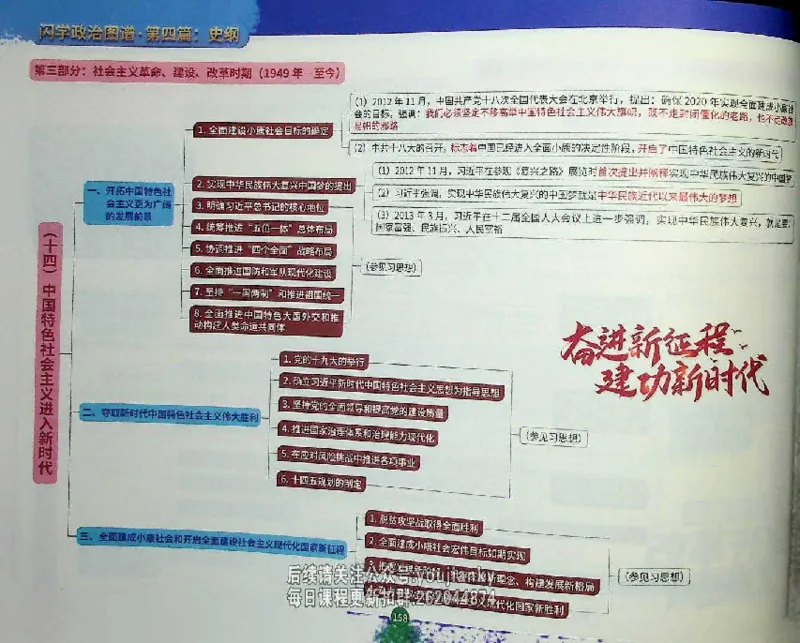 闪学政治图谱·第四篇:史纲
第三部分:社会主义革命、建设、改革时期(1949年—至今)
(十四)中国特色社会主义进入新时代
一、开拓中国特色社
会主义更为广阔
的发展前景
1. 全面建设小康社会目标的确定
(1)2012年11月,中国共产党十八次全国代表大会在北京举行,提出:确保2020年实现全面建成小康社
会的目标,强调:我们必须坚定不移高举中国特色社会主义伟大旗帜,既不走封闭僵化的老路,也不走改旗
易帜的邪路
(2)中共十八大的召开,标志着中国已经进入全面小康的决定性阶段,开启了中国特色社会主义的新时代
2. 实现中华民族伟大复兴中国梦的提出
(1)2012年11月,习近平在参观《复兴之路》展览时首次提出并阐释实现中华民族伟大复兴的中国梦
(2)习近平强调,实现中华民族伟大复兴的中国梦就是中华民族近代以来最伟大的梦想
(3)2013年3月,习近平在十二届全国人大会议上进一步强调,实现中华民族伟大复兴,就是要
国家富强、民族振兴、人民幸福
3. 明确习近平总书记的核心地位
4. 统筹推进“五位一体”总体布局
5. 协调推进“四个全面”战略布局
6. 全面推进国防和军队现代化建设
7. 坚持“一国两制”和推进祖国统一
8. 全面推进中国特色大国外交和推
动构建人类命运共同体
(参见习思想)
奋进新征程
建功新时代
二、夺取新时代中国特色社会主义伟大胜利
1. 党的十九大的举行
2. 确立习近平新时代中国特色社会主义思想为指导思想
3. 坚持党的全面领导和提高党的建设质量
4. 推进国家治理体系和治理能力现代化
5. 在应对风险挑战中推进各项事业
6. 十四五规划的制定
(参见习思想)
三、全面建成小康社会和开启全面建设社会主义现代化国家新征程
1. 脱贫攻坚战取得全面胜利
2. 全面建成小康社会宏伟目标如期实现
理念、构建发展新格局
现代化国家新胜利
(参见习思想)
后续请关注公众号:youjiarky
每日课程更新扣群:262044874
158